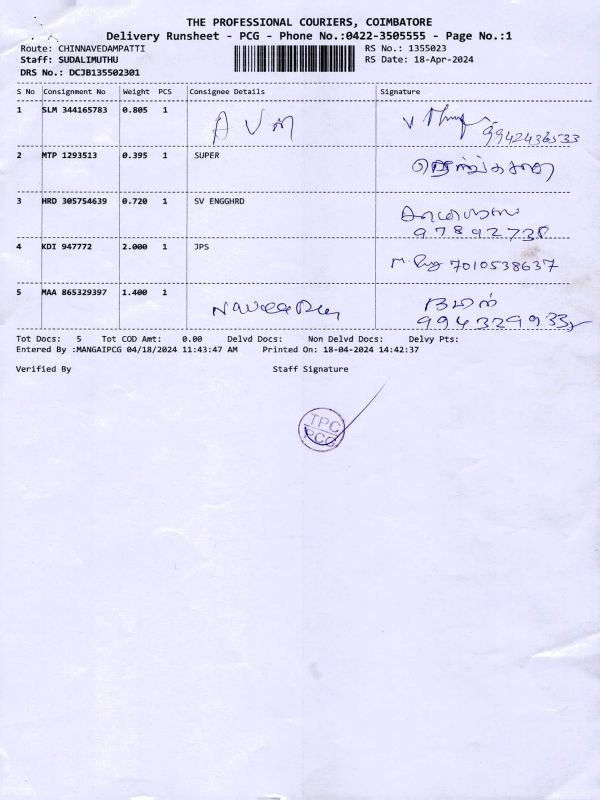 THE PROFESSIONAL COURIERS, COIMBATORE
Delivery Runsheet - PCG - Phone No.:0422-3505555 - Page No.:1
Route: CHINNAVEDAMPATTI RS No.: 1355023
Staff: SUDALIMUTHU RS Date: 18-Apr-2024
DRS No.: DCJB135502301
S No Consignment No Weight PCS Consignee Details Signature
1 SLM 344165783 0.805 1 AVM
9942436533
2 MTP 1293513 0.395 1 SUPER
3 HRD 305754639 0.720 1 SV ENGGHRD
4 KDI 947772 2.000 1 JPS 7010538637
5 MAA 865329397 1.400 1
Tot Docs: 5 Tot COD Amt: 0.00 Delvd Docs: Non Delvd Docs: Delvy Pts:
Entered By :MANGAIPCG 04/18/2024 11:43:47 AM Printed On: 18-04-2024 14:42:37
Verified By Staff Signature
TPC
PCG